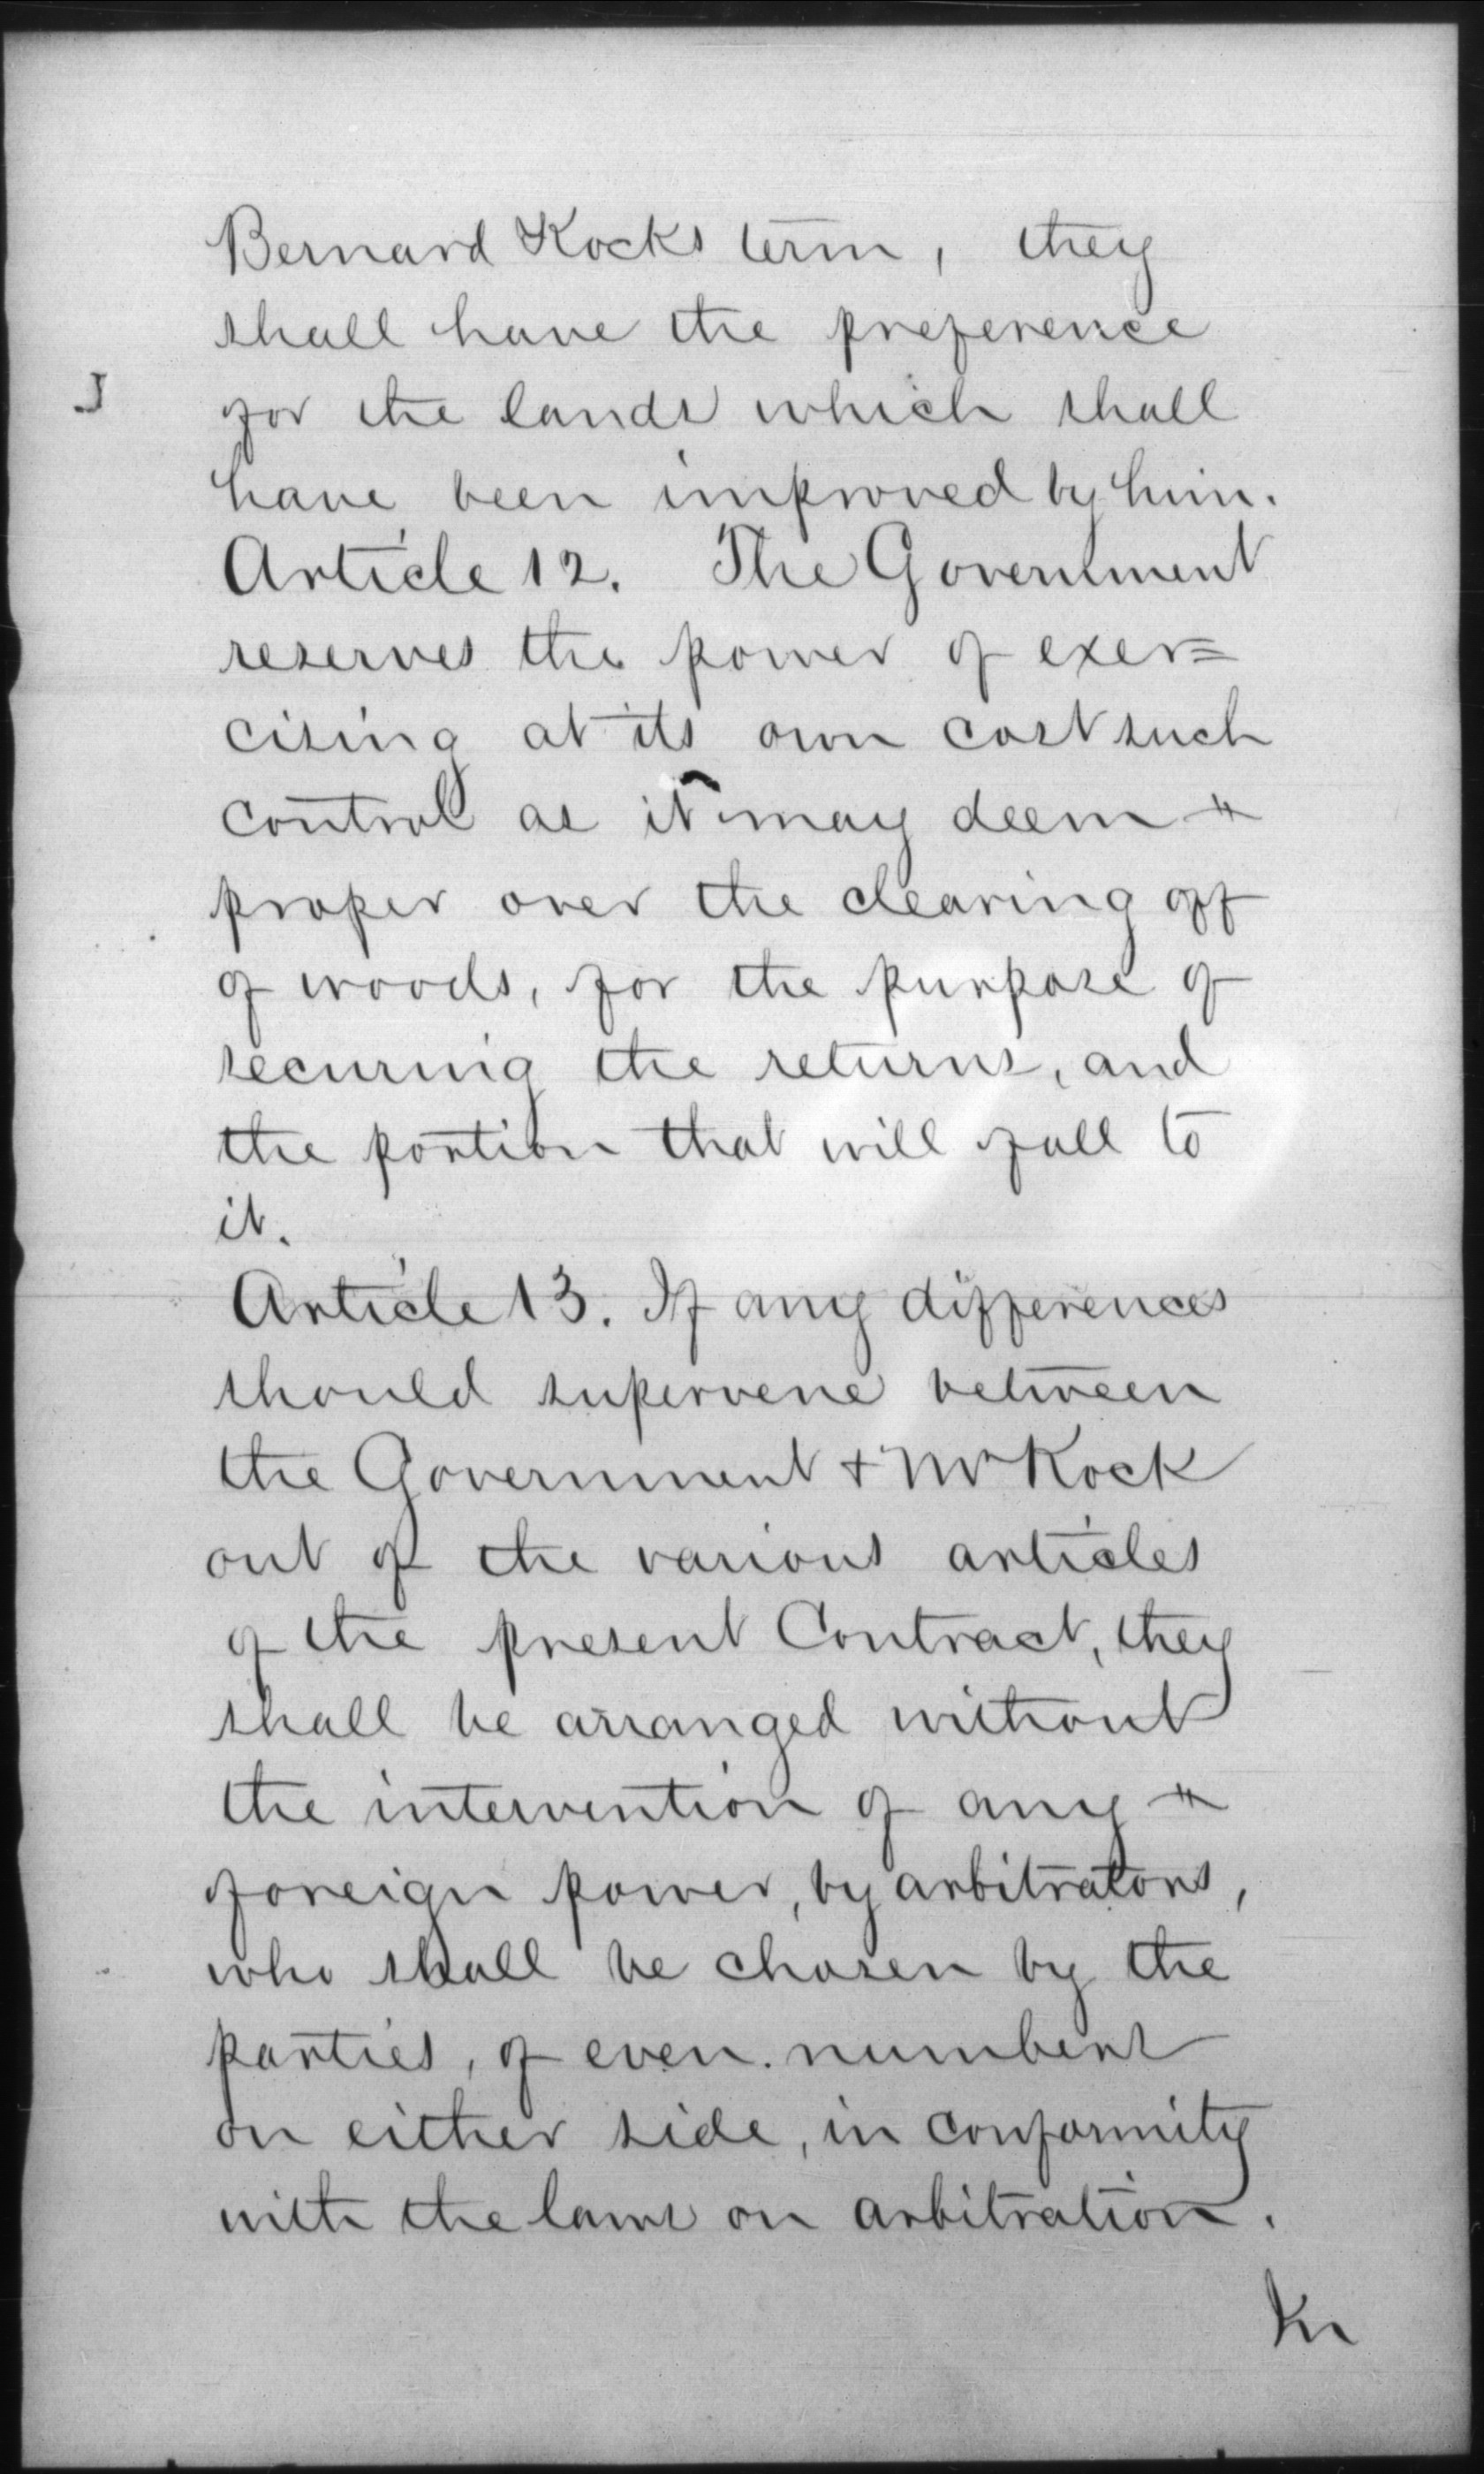 Bernard Kocks term, they
shall have the preference
for the lands which shall
have been improved by him.
Article 12. The Government
reserves the power of exer=
cising at its own cost such
control as it may deem
proper over the clearing off
of woods, for the purpose of
securing the returns, and
the portion that will fall to
it.
Article 13. If any differences
should supervene between
the Government + Mr Kock
out of the various articles
of the present Contract, they
shall be arranged without
the intervention of any
foreign power, by arbitrators,
who shall be chosen by the
parties, of even numbers
on either side, in conformity
with the laws on arbitration.